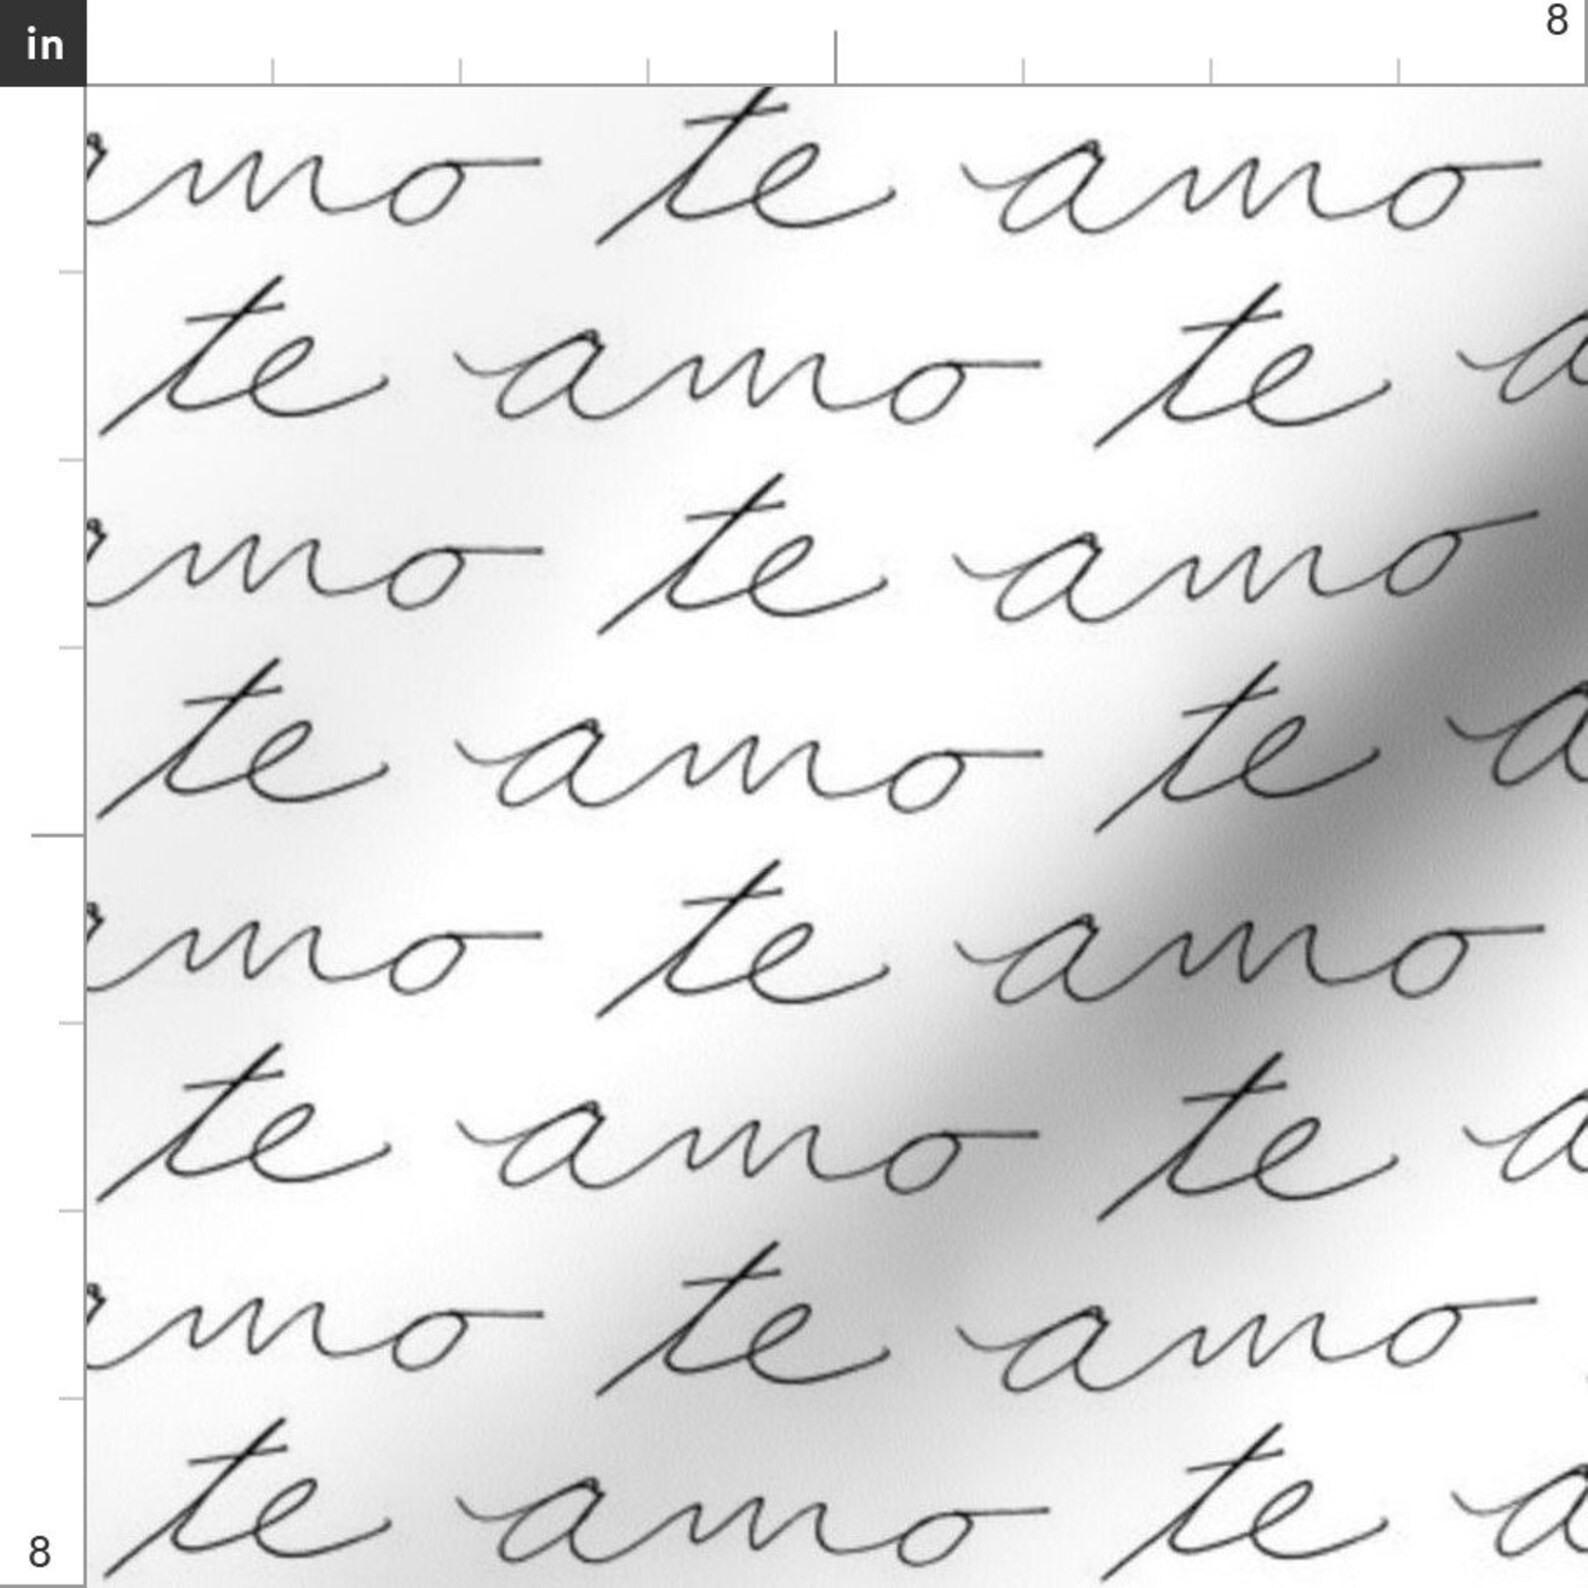 in 8
amo te amo
te amo te a
amo te amo
te amo te a
amo te amo
te amo te a
amo te amo
te amo te a
8